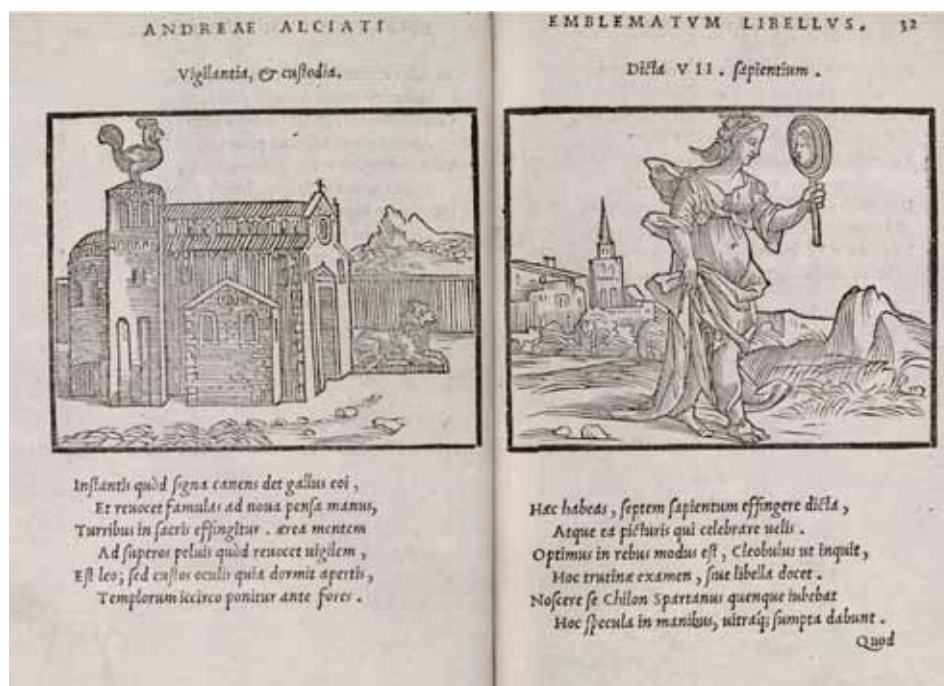 ANDREAE ALCIATI
Vigilantia, & custodia.
Instantis quòd signa canens det gallus eoi,
Et reuocet famulas ad noua pensa manus,
Turribus in sacris effingitur. ærea mentem
Ad superos peluis quòd reuocet uigilem,
Est leo; sed custos oculis quia dormit apertis,
Templorum iccirco ponitur ante fores.
EMBLEMATVM LIBELLVS. 32
Dicta VII. sapientium.
Hæc habeas, septem sapientum effingere dicta,
Atque ea picturis qui celebrare uelis.
Optimus in rebus modus est, Cleobulus ut inquit,
Hoc trutinæ examen, siue libella docet.
Noscere se Chilon Spartanus quenque iubebat
Hoc specula in manibus, uitraq́; sumpta dabunt.
Quod